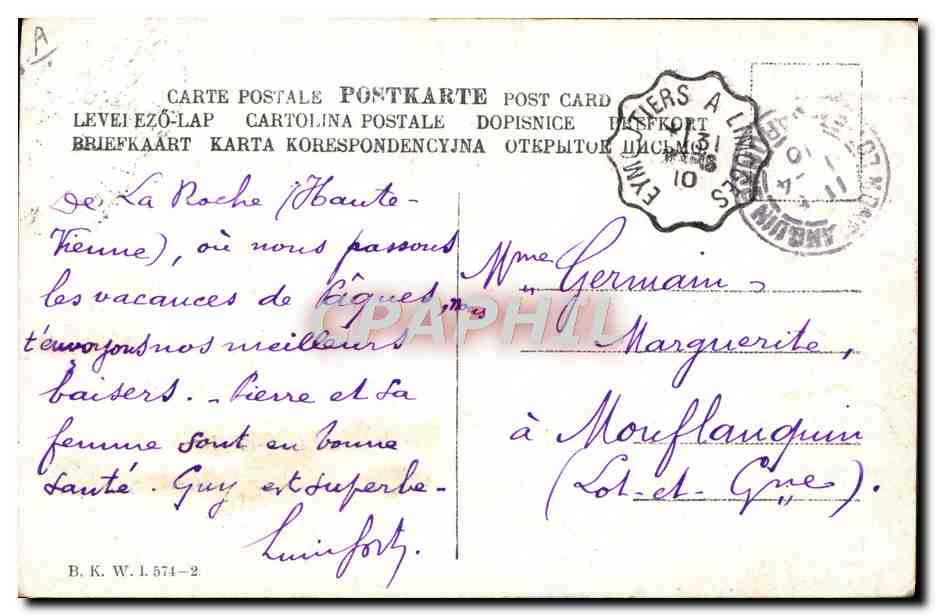 A
CARTE POSTALE POSTKARTE POST CARD
LEVELEZŐ-LAP CARTOLINA POSTALE DOPISNICE BREFKORT
BRIEFKAART KARTA KORESPONDENCYJNA ОТКРЫТОЕ ПИСЬМО
EYMOUTIERS A LIMOGES
31
10
de La Roche (Haute-
Vienne), où nous passons
les vacances de Pâques, nous
t'envoyons nos meilleurs
baisers. - Pierre et sa
femme sont en bonne
santé. Guy est superbe -
Mme Germain
Marguerite,
à Monflanquin
(Lot-et-Gnne).
CPAPHIL
B. K. W. I. 574-2